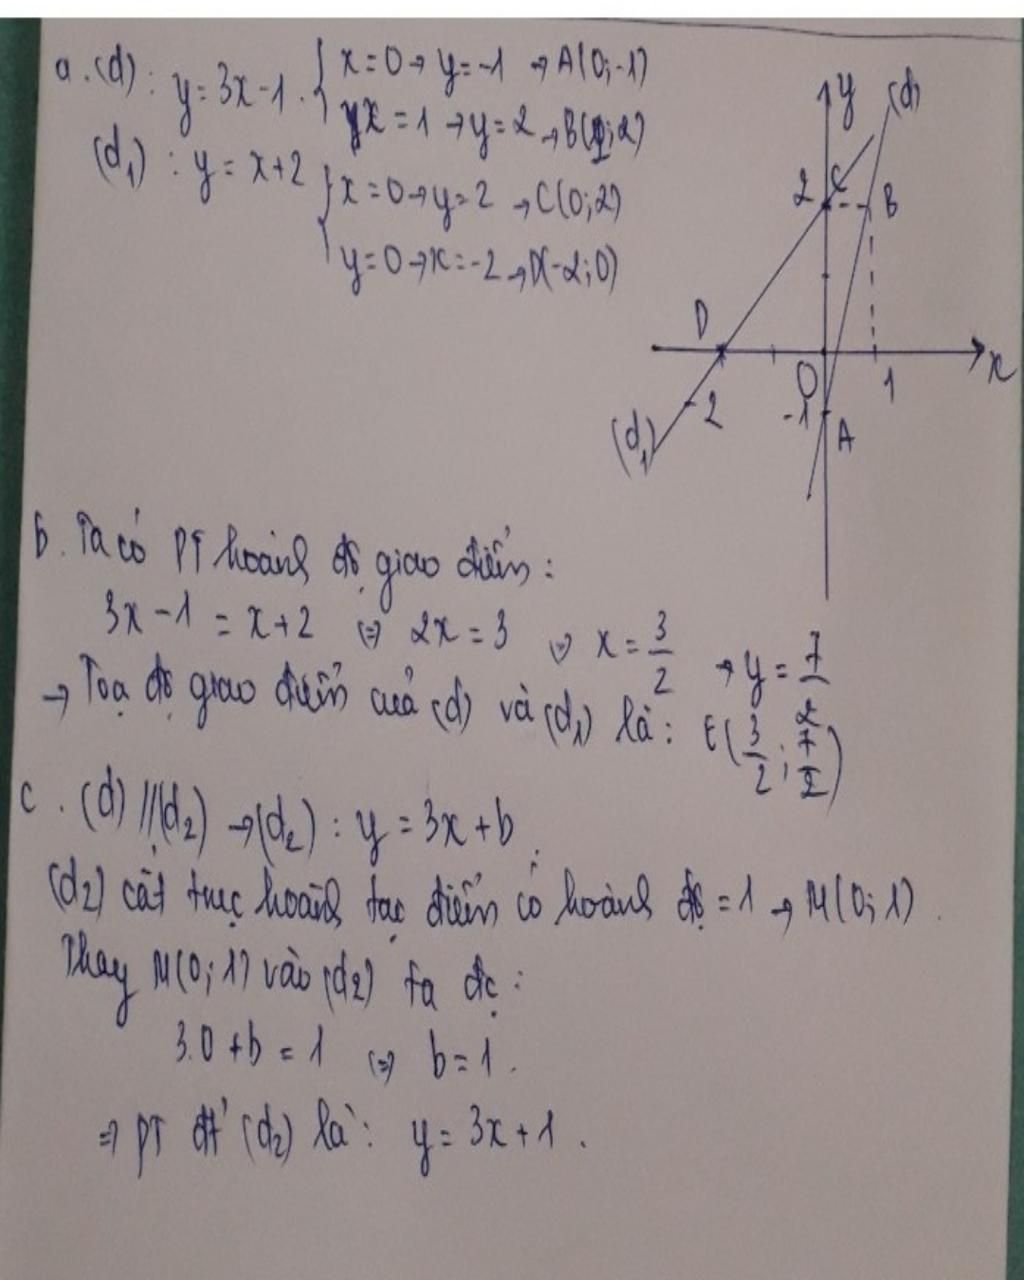 a. (d): y = 3x - 1. { x = 0 → y = -1 → A(0; -1)
x = 1 → y = 2 → B(1; 2)
(d₁): y = x + 2 { x = 0 → y = 2 → C(0; 2)
y = 0 → x = -2 → D(-2; 0)
y
(d)
2
C
B
D
O
1
x
-2
-1
A
(d₁)
b. Ta có PT hoành độ giao điểm:
3x - 1 = x + 2 ⇔ 2x = 3 ⇔ x = 3/2 → y = 7/2
→ Toạ độ giao điểm của (d) và (d₁) là: E(3/2; 7/2)
c. (d) // (d₂) → (d₂): y = 3x + b.
(d₂) cắt trục hoành tại điểm có hoành độ = 1 → M(0; 1).
Thay M(0; 1) vào (d₂) ta đc:
3.0 + b = 1 ⇔ b = 1.
⇒ PT đt' (d₂) là: y = 3x + 1.